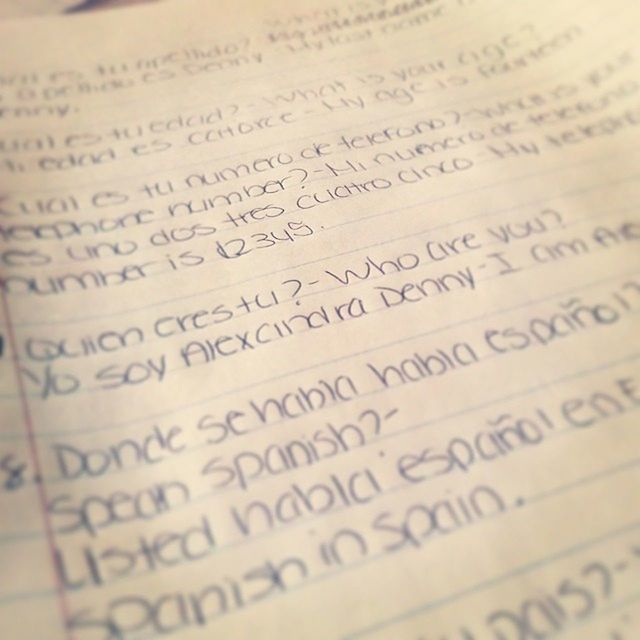 What is
es tu apellido? My last name
apellido es Denny.
Denny.
edad? - What is your age?
Mi edad es catorce - My age is fourteen
Cual es tu numero de telefono? - What is your
telephone number? - Mi numero de telefono
es uno dos tres cuatro cinco - My telephone
number is 12345.
Quien eres tu? - Who are you?
Yo soy Alexandra Denny - I am
8. Donde se habla habla español?
Spean spanish? -
Usted habla español en
spanish in spain.
pais? -